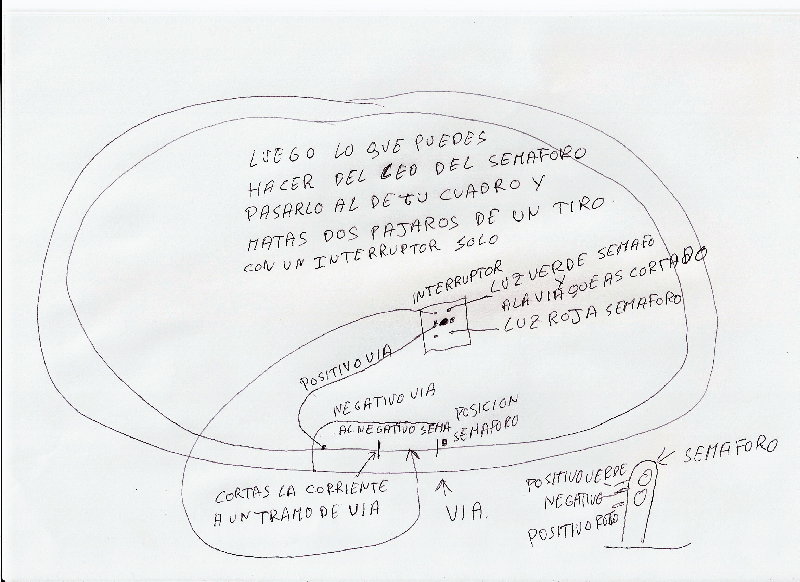 LUEGO LO QUE PUEDES
HACER DEL LED DEL SEMAFORO
PASARLO AL DE TU CUADRO Y
MATAS DOS PAJAROS DE UN TIRO
CON UN INTERRUPTOR SOLO
INTERRUPTOR
LUZ VERDE SEMAFO
Y
ALAVIA QUE AS CORTADO
LUZ ROJA SEMAFORO
POSITIVO VIA
NEGATIVO VIA
AL NEGATIVO SEMA
POSICION
SEMAFORO
CORTAS LA CORRIENTE
A UN TRAMO DE VIA
VIA.
SEMAFORO
POSITIVO VERDE
NEGATIVO
POSITIVO